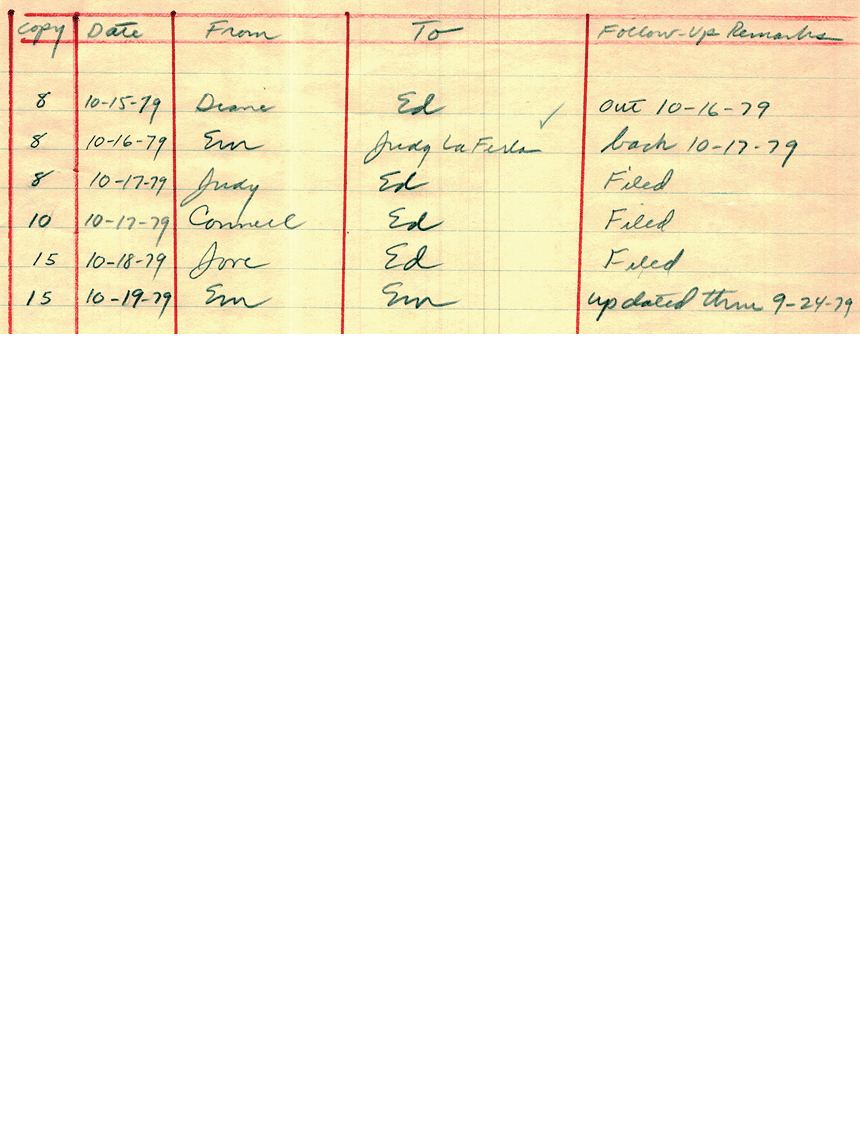 Copy Date From To Follow-Up Remarks
8 10-15-79 Diane Ed out 10-16-79
8 10-16-79 Em Judy La Ferla ✓ back 10-17-79
8 10-17-79 Judy Ed Filed
10 10-17-79 Ed Filed
15 10-18-79 Ed Filed
15 10-19-79 Em Em updated thru 9-24-79